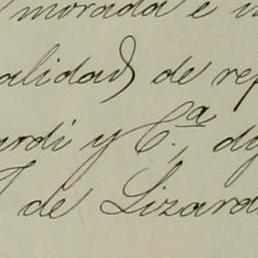 morada e
alidad de rep
ardi y C.ª, d
de Lizard